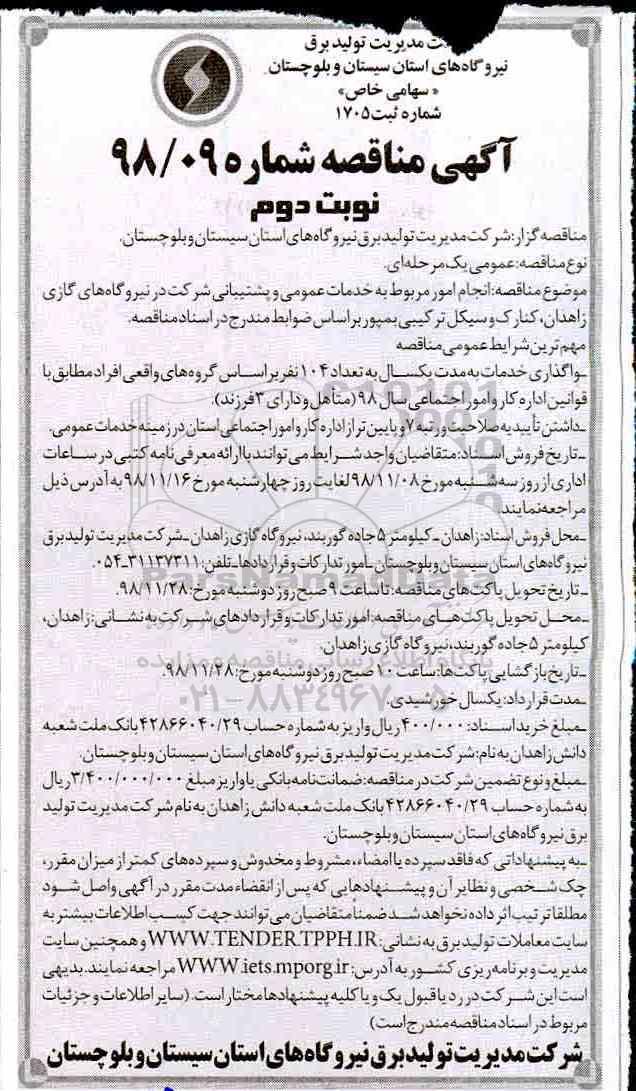 مدیریت تولید برق
نیروگاه‌های استان سیستان و بلوچستان
« سهامی خاص»
شماره ثبت ۱۷۰۵
آگهی مناقصه شماره ۹۸/۰۹
نوبت دوم
مناقصه گزار: شرکت مدیریت تولید برق نیروگاه‌های استان سیستان و بلوچستان.
نوع مناقصه: عمومی یک مرحله‌ای.
موضوع مناقصه: انجام امور مربوط به خدمات عمومی و پشتیبانی شرکت در نیروگاه‌های گازی
زاهدان، کنارک و سیکل ترکیبی بمپور براساس ضوابط مندرج در اسناد مناقصه.
مهم‌ترین شرایط عمومی مناقصه
ـ واگذاری خدمات به مدت یکسال به تعداد ۱۰۴ نفر براساس گروه‌های واقعی افراد مطابق با
قوانین اداره کار و امور اجتماعی سال ۹۸ (متأهل و دارای ۳ فرزند).
ـ داشتن تأییدیه صلاحیت و رتبه ۷ و پایین‌تر از اداره کار و امور اجتماعی استان در زمینه خدمات عمومی.
ـ تاریخ فروش اسناد: متقاضیان واجد شرایط می‌توانند با ارائه معرفی‌نامه کتبی در ساعات
اداری از روز سه‌شنبه مورخ ۹۸/۱۱/۰۸ لغایت روز چهارشنبه مورخ ۹۸/۱۱/۱۶ به آدرس ذیل
مراجعه نمایند.
ـ محل فروش اسناد: زاهدان ـ کیلومتر ۵ جاده گوربند، نیروگاه گازی زاهدان ـ شرکت مدیریت تولید برق
نیروگاه‌های استان سیستان و بلوچستان ـ امور تدارکات و قراردادها ـ تلفن: ۳۱۱۳۷۳۱۱ـ۰۵۴.
ـ تاریخ تحویل پاکت‌های مناقصه: تا ساعت ۹ صبح روز دوشنبه مورخ: ۹۸/۱۱/۲۸.
ـ محل تحویل پاکت‌های مناقصه: امور تدارکات و قراردادهای شرکت به نشانی: زاهدان،
کیلومتر ۵ جاده گوربند، نیروگاه گازی زاهدان.
ـ تاریخ بازگشایی پاکت‌ها: ساعت ۱۰ صبح روز دوشنبه مورخ: ۹۸/۱۱/۲۸.
ـ مدت قرارداد: یکسال خورشیدی.
ـ مبلغ خرید اسناد: ۴۰۰/۰۰۰ ریال واریز به شماره حساب ۴۲۸۶۶۰۴۰/۲۹ بانک ملت شعبه
دانش زاهدان به نام: شرکت مدیریت تولید برق نیروگاه‌های استان سیستان و بلوچستان.
ـ مبلغ و نوع تضمین شرکت در مناقصه: ضمانت‌نامه بانکی یا واریز مبلغ ۳/۴۰۰/۰۰۰/۰۰۰ ریال
به شماره حساب ۴۲۸۶۶۰۴۰/۲۹ بانک ملت شعبه دانش زاهدان به نام شرکت مدیریت تولید
برق نیروگاه‌های استان سیستان و بلوچستان.
ـ به پیشنهاداتی که فاقد سپرده یا امضاء، مشروط و مخدوش و سپرده‌های کمتر از میزان مقرر،
چک شخصی و نظایر آن و پیشنهادهایی که پس از انقضاء مدت مقرر در آگهی واصل شود
مطلقا ترتیب اثر داده نخواهد شد ضمناً متقاضیان می‌توانند جهت کسب اطلاعات بیشتر به
سایت معاملات تولید برق به نشانی: WWW.TENDER.TPPH.IR و همچنین سایت
مدیریت و برنامه‌ریزی کشور به آدرس: WWW.iets.mporg.ir مراجعه نمایند. بدیهی
است این شرکت در رد یا قبول یک و یا کلیه پیشنهادها مختار است. (سایر اطلاعات و جزئیات
مربوط در اسناد مناقصه مندرج است)
شرکت مدیریت تولید برق نیروگاه‌های استان سیستان و بلوچستان
ParsNamadData
پایگاه اطلاع رسانی مناقصه و مزایده
۰۲۱-۸۸۳۴۹۶۷۰-۵